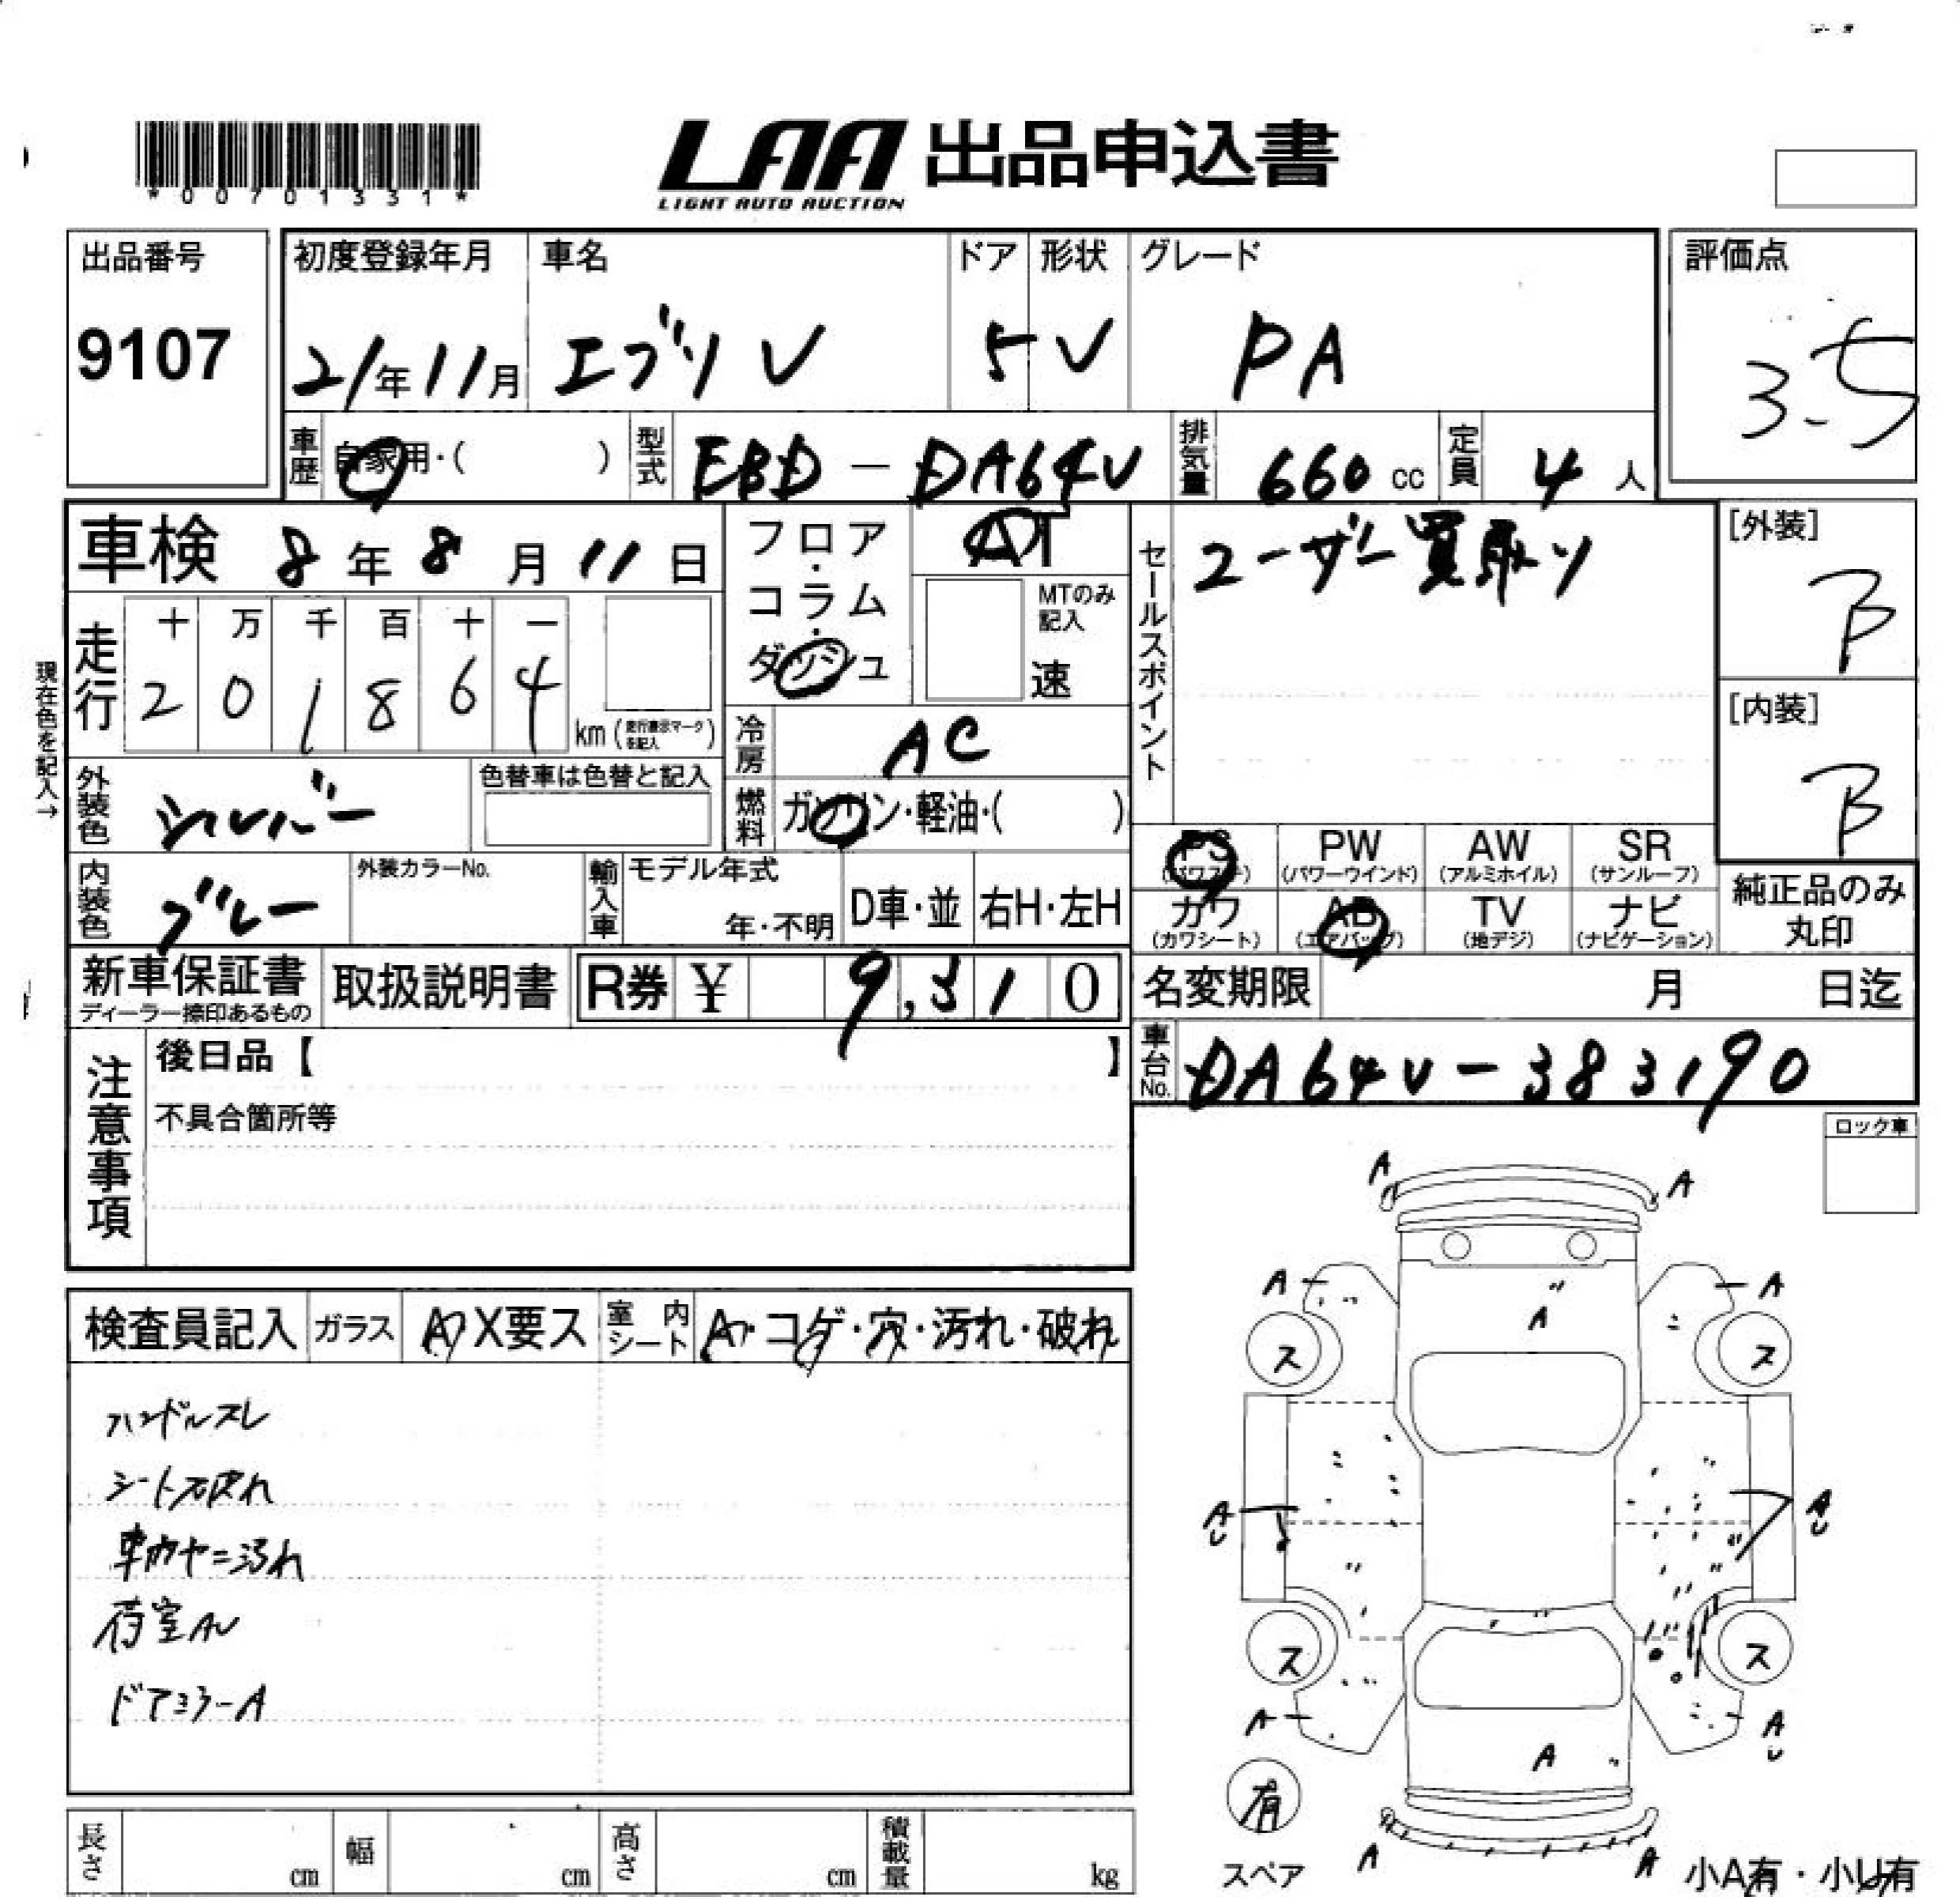 *00701331*
LAA 出品申込書
LIGHT AUTO AUCTION
出品番号
9107
初度登録年月
21年11月
車名
エブリV
ドア
5
形状
V
グレード
PA
評価点
3.5
車歴
自家用・( )
型式
EBD-DA64V
排気量
660 cc
定員
4 人
車検 8年8月11日
フロア・コラム・ダッシュ
AT
MTのみ記入
速
セールスポイント
ユーザー買取り
[外装]
B
[内装]
B
現在色を記入→
走行
十 万 千 百 十 一
2 0 1 8 6 4
km (走行表示マークを記入)
冷房
AC
外装色
シルバー
色替車は色替と記入
燃料
ガソリン・軽油・( )
内装色
グレー
外装カラーNo.
輸入車
モデル年式
年・不明
D車・並
右H・左H
PS (パワステ)
PW (パワーウインド)
AW (アルミホイル)
SR (サンルーフ)
カワ (カワシート)
AB (エアバッグ)
TV (地デジ)
ナビ (ナビゲーション)
純正品のみ丸印
新車保証書
ディーラー捺印あるもの
取扱説明書
R券 ¥ 9,310
名変期限 月 日迄
車台No.
DA64V-383190
注意事項
後日品【 】
不具合箇所等
ロック車
検査員記入
ガラス
A X要ス
室内シート
A・コゲ・穴・汚れ・破れ
ハンドルスレ
シート破れ
車内ヤニ汚れ
荷室AU
ドアミラーA
A A
A A
A
ス ス
AU AU
ス ス
A AU
A
有
スペア
A A
小A有・小U有
長さ cm
幅 cm
高さ cm
積載量 kg